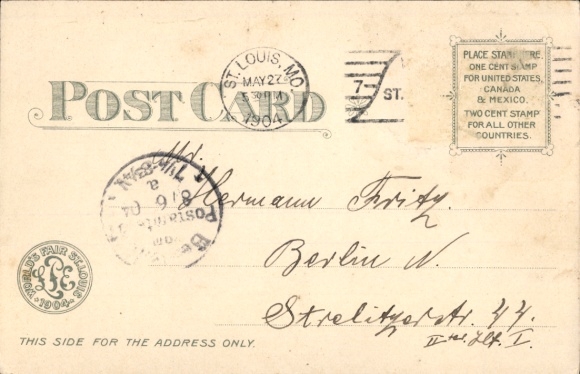 POST CARD
ST. LOUIS, MO.
MAY 27
5 30 PM
1904
7-
ST.
PLACE STAMP HERE.
ONE CENT STAMP
FOR UNITED STATES,
CANADA
& MEXICO.
TWO CENT STAMP
FOR ALL OTHER
COUNTRIES.
Hermann Fritz.
Berlin N.
Strelitzerstr. 44.
II I.
8 6
04
a
Postamts
vom
WORLD'S FAIR ST. LOUIS
1904
THIS SIDE FOR THE ADDRESS ONLY.